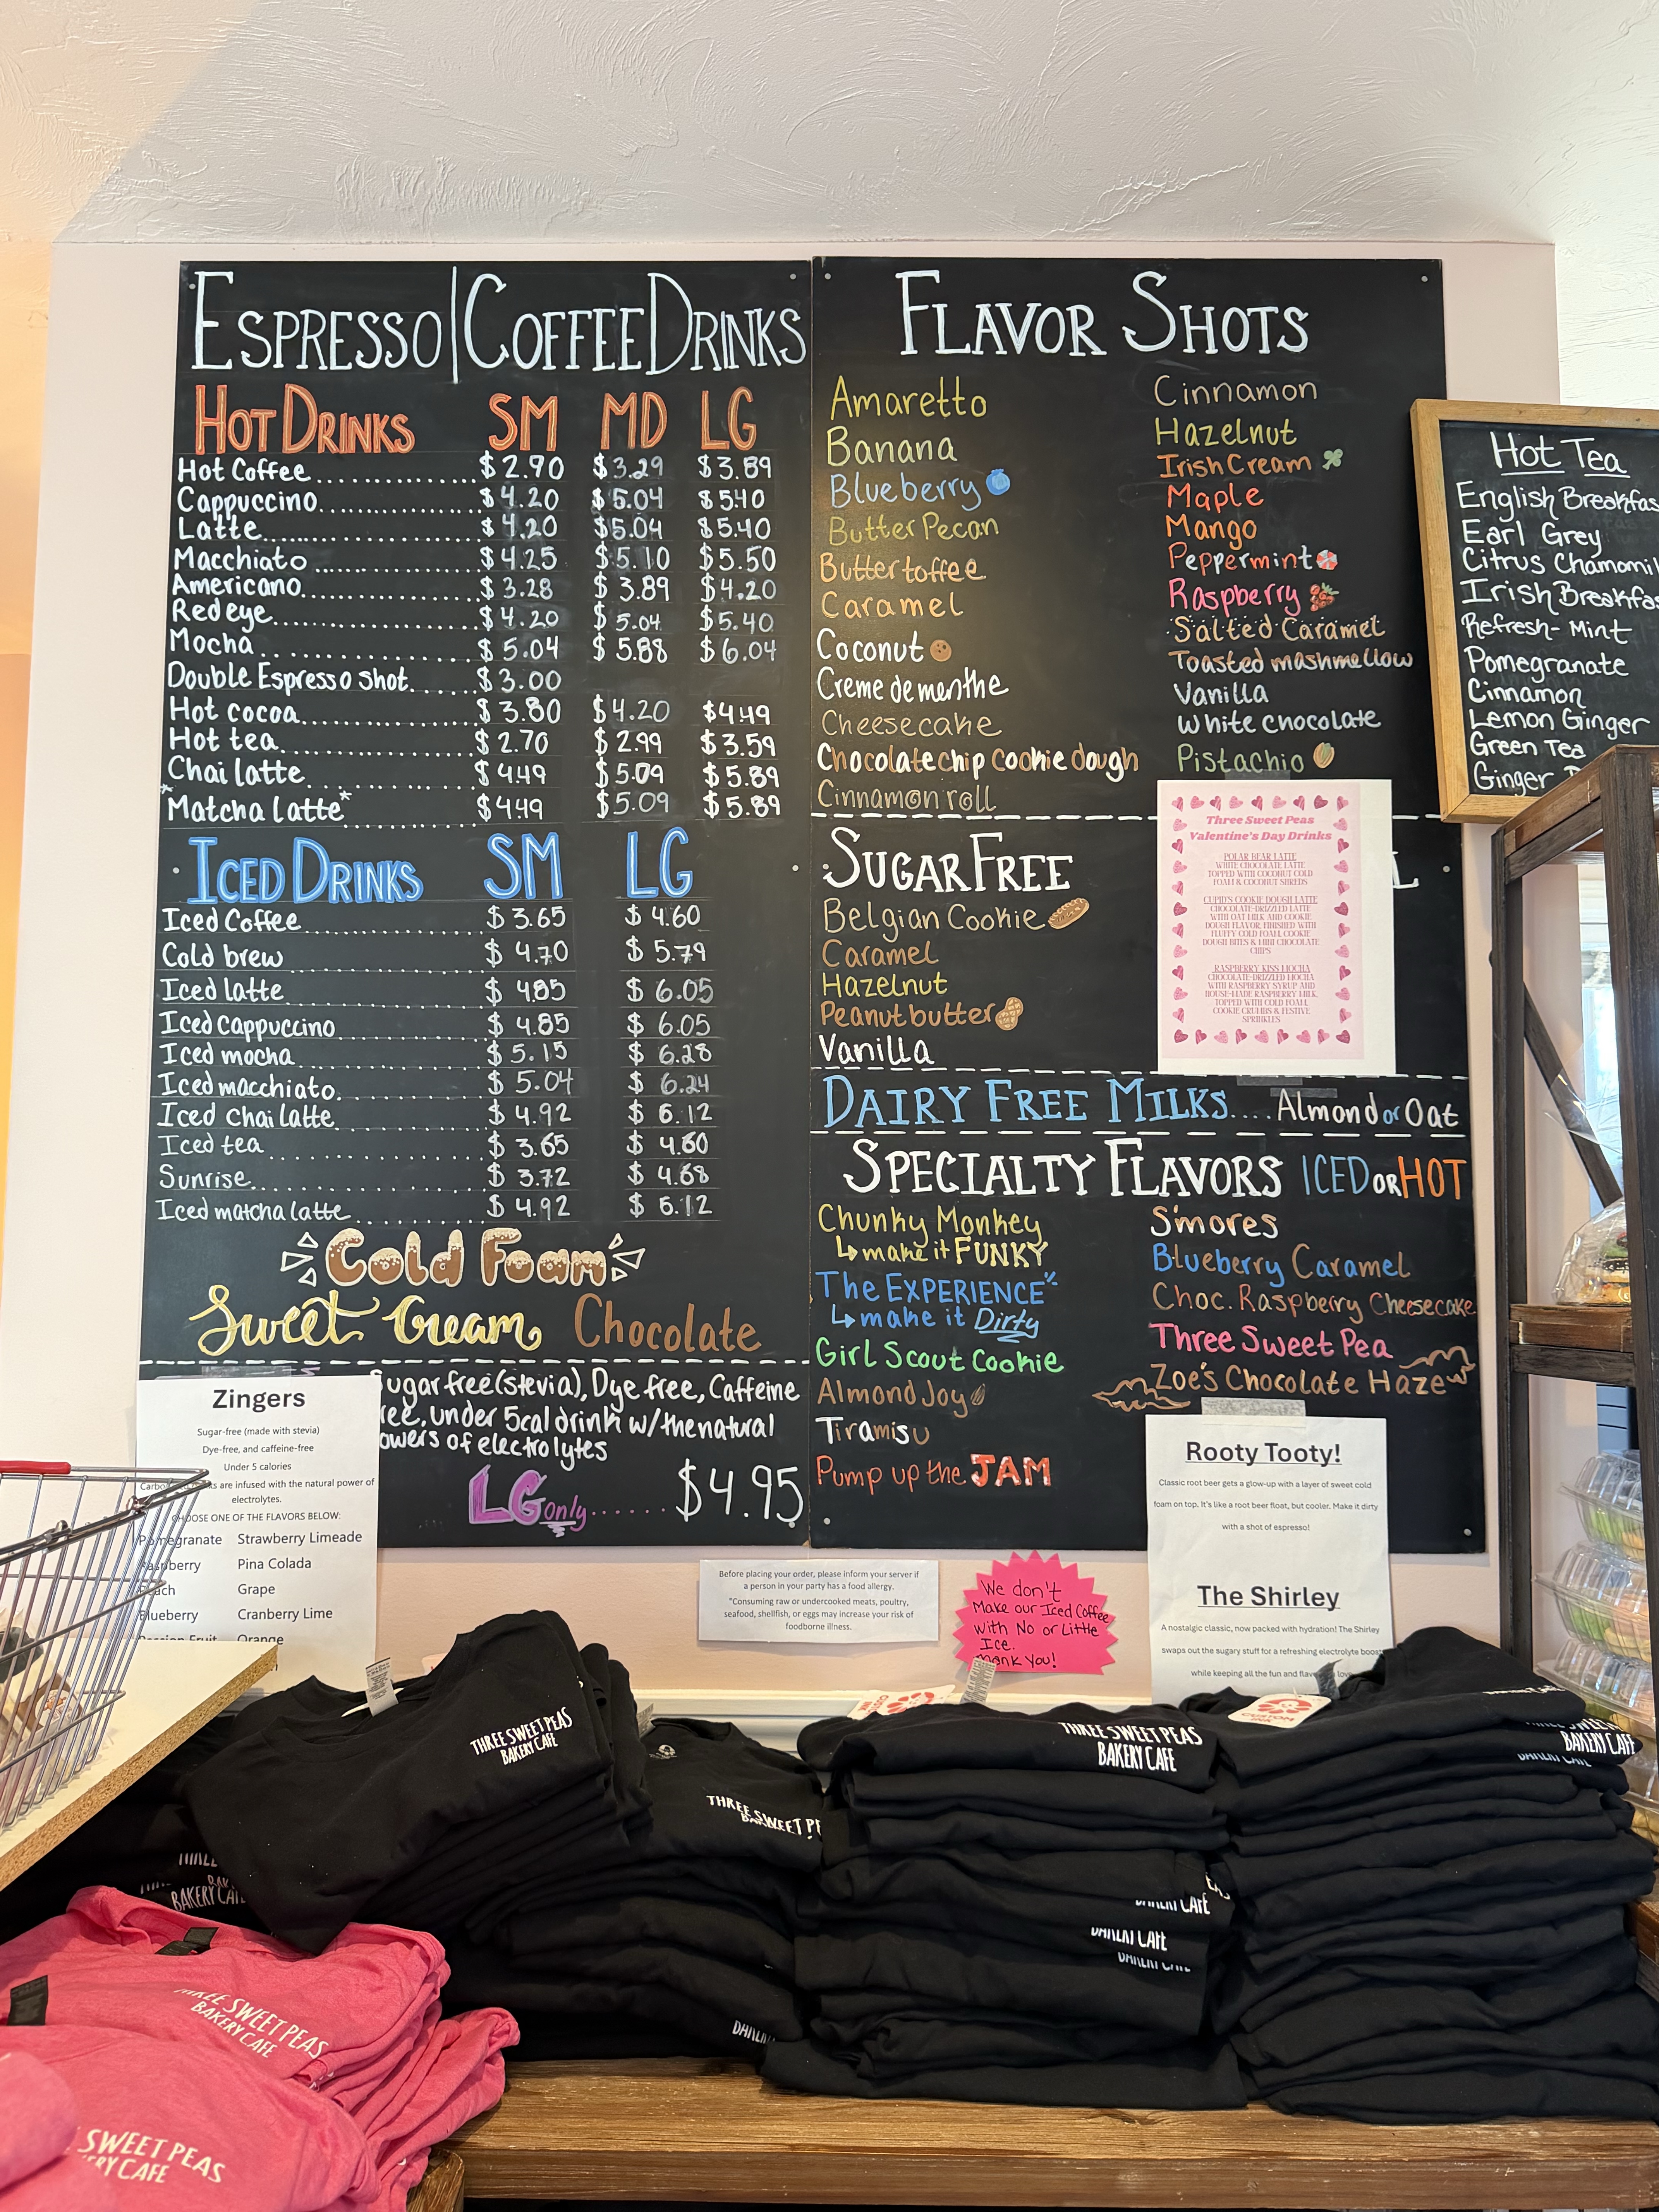 ESPRESSO|COFFEE DRINKS
HOT DRINKS SM MD LG
Hot Coffee................ $2.90 $3.29 $3.89
Cappuccino................ $4.20 $5.04 $5.40
Latte................ $4.20 $5.04 $5.40
Macchiato................ $4.25 $5.10 $5.50
Americano................ $3.28 $3.89 $4.20
Redeye................ $4.20 $5.04 $5.40
Mocha................ $5.04 $5.88 $6.04
Double Espresso shot...... $3.00
Hot cocoa................ $3.80 $4.20 $4.49
Hot tea................ $2.70 $2.99 $3.59
Chai latte................ $4.49 $5.09 $5.89
*Matcha latte*................ $4.49 $5.09 $5.89
ICED DRINKS SM LG
Iced Coffee................ $3.65 $4.60
Cold brew................ $4.70 $5.79
Iced latte................ $4.85 $6.05
Iced cappuccino................ $4.85 $6.05
Iced mocha................ $5.15 $6.28
Iced macchiato................ $5.04 $6.24
Iced chai latte................ $4.92 $6.12
Iced tea................ $3.65 $4.60
Sunrise................ $3.72 $4.68
Iced matcha latte................ $4.92 $6.12
Cold Foam
Sweet Cream Chocolate
Sugar free(stevia), Dye free, Caffeine
free, under 5cal drink w/ the natural
powers of electrolytes
LG only...... $4.95
FLAVOR SHOTS
Amaretto
Banana
Blueberry
Butter Pecan
Buttertoffee
Caramel
Coconut
Creme de menthe
Cheesecake
Chocolate chip cookie dough
Cinnamon roll
Cinnamon
Hazelnut
Irish Cream
Maple
Mango
Peppermint
Raspberry
Salted Caramel
Toasted mashmellow
Vanilla
White chocolate
Pistachio
SUGAR FREE
Belgian Cookie
Caramel
Hazelnut
Peanut butter
Vanilla
L
Three Sweet Peas
Valentine's Day Drinks
POLAR BEAR LATTE
WHITE CHOCOLATE LATTE
TOPPED WITH COCONUT COLD
FOAM & COCONUT SHREDS
CUPID'S COOKIE DOUGH LATTE
CHOCOLATE-DRIZZLED LATTE
WITH OAT MILK AND COOKIE
DOUGH FLAVOR, FINISHED WITH
FLUFFY COLD FOAM, COOKIE
DOUGH BITES & MINI CHOCOLATE
CHIPS
RASPBERRY KISS MOCHA
CHOCOLATE-DRIZZLED MOCHA
WITH RASPBERRY SYRUP AND
HOUSE-MADE RASPBERRY MILK,
TOPPED WITH COLD FOAM,
COOKIE CRUMBS & FESTIVE
SPRINKLES
DAIRY FREE MILKS.... Almond or Oat
SPECIALTY FLAVORS ICED OR HOT
Chunky Monkey
make it FUNKY
The EXPERIENCE
make it Dirty
Girl Scout Cookie
Almond Joy
Tiramisu
Pump up the JAM
S'mores
Blueberry Caramel
Choc. Raspberry Cheesecake
Three Sweet Pea
Zoe's Chocolate Haze
Hot Tea
English Breakfas
Earl Grey
Citrus Chamomil
Irish Breakfas
Refresh-Mint
Pomegranate
Cinnamon
Lemon Ginger
Green Tea
Ginger
Zingers
Sugar-free (made with stevia)
Dye-free, and caffeine-free
Under 5 calories
are infused with the natural power of
electrolytes.
CHOOSE ONE OF THE FLAVORS BELOW:
Pomegranate Strawberry Limeade
Raspberry Pina Colada
Peach Grape
Blueberry Cranberry Lime
Passion Fruit Orange
Before placing your order, please inform your server if
a person in your party has a food allergy.
*Consuming raw or undercooked meats, poultry,
seafood, shellfish, or eggs may increase your risk of
foodborne illness.
We don't
Make our Iced Coffee
with No or Little
Ice.
Thank You!
Rooty Tooty!
Classic root beer gets a glow-up with a layer of sweet cold
foam on top. It's like a root beer float, but cooler. Make it dirty
with a shot of espresso!
The Shirley
A nostalgic classic, now packed with hydration! The Shirley
swaps out the sugary stuff for a refreshing electrolyte boost
while keeping all the fun and
THREE SWEET PEAS
BAKERY CAFE
THREE SWEET PE
THREE SWEET PEAS
BAKERY CAFE
CUSTOM
INK
BAKERY CAFE
BAKERY CAFE
BAKERY CAFE
THREE SWEET PEAS
BAKERY CAFE
SWEET PEAS
RY CAFE